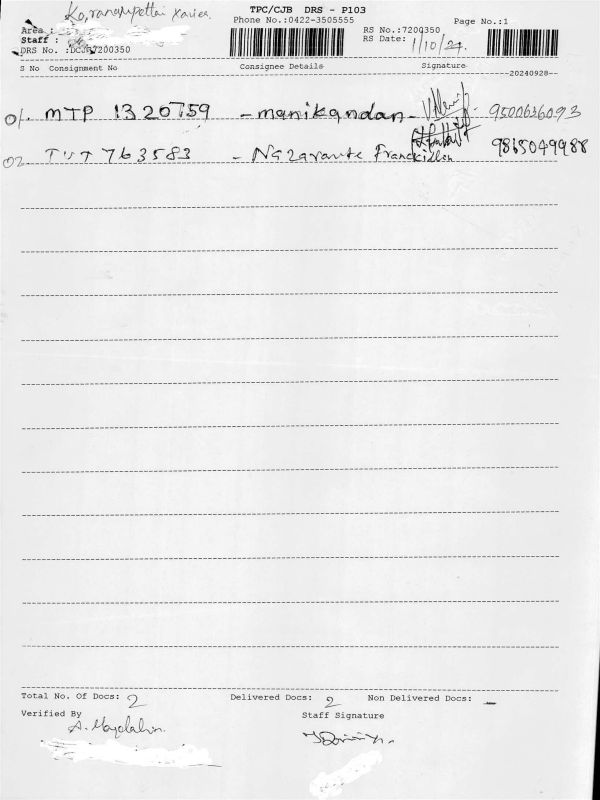 Koranampettai Xavier.
TPC/CJB DRS - P103
Phone No.:0422-3505555
Page No.:1
Area :
RS No.:7200350
Staff :
RS Date: 1/10/24.
DRS No. :DCJB7200350
S No Consignment No Consignee Details Signature
20240928
01. MTP 1320759 - manikandan - 9500636093
02. TUT 763583 - 9865049988
Total No. Of Docs: 2 Delivered Docs: 2 Non Delivered Docs: -
Verified By Staff Signature